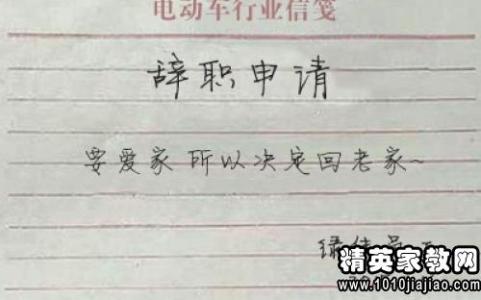 电动车行业信笺
辞职申请
要爱家 所以决定回老家~
精英家教网
www.1010jiajiao.com